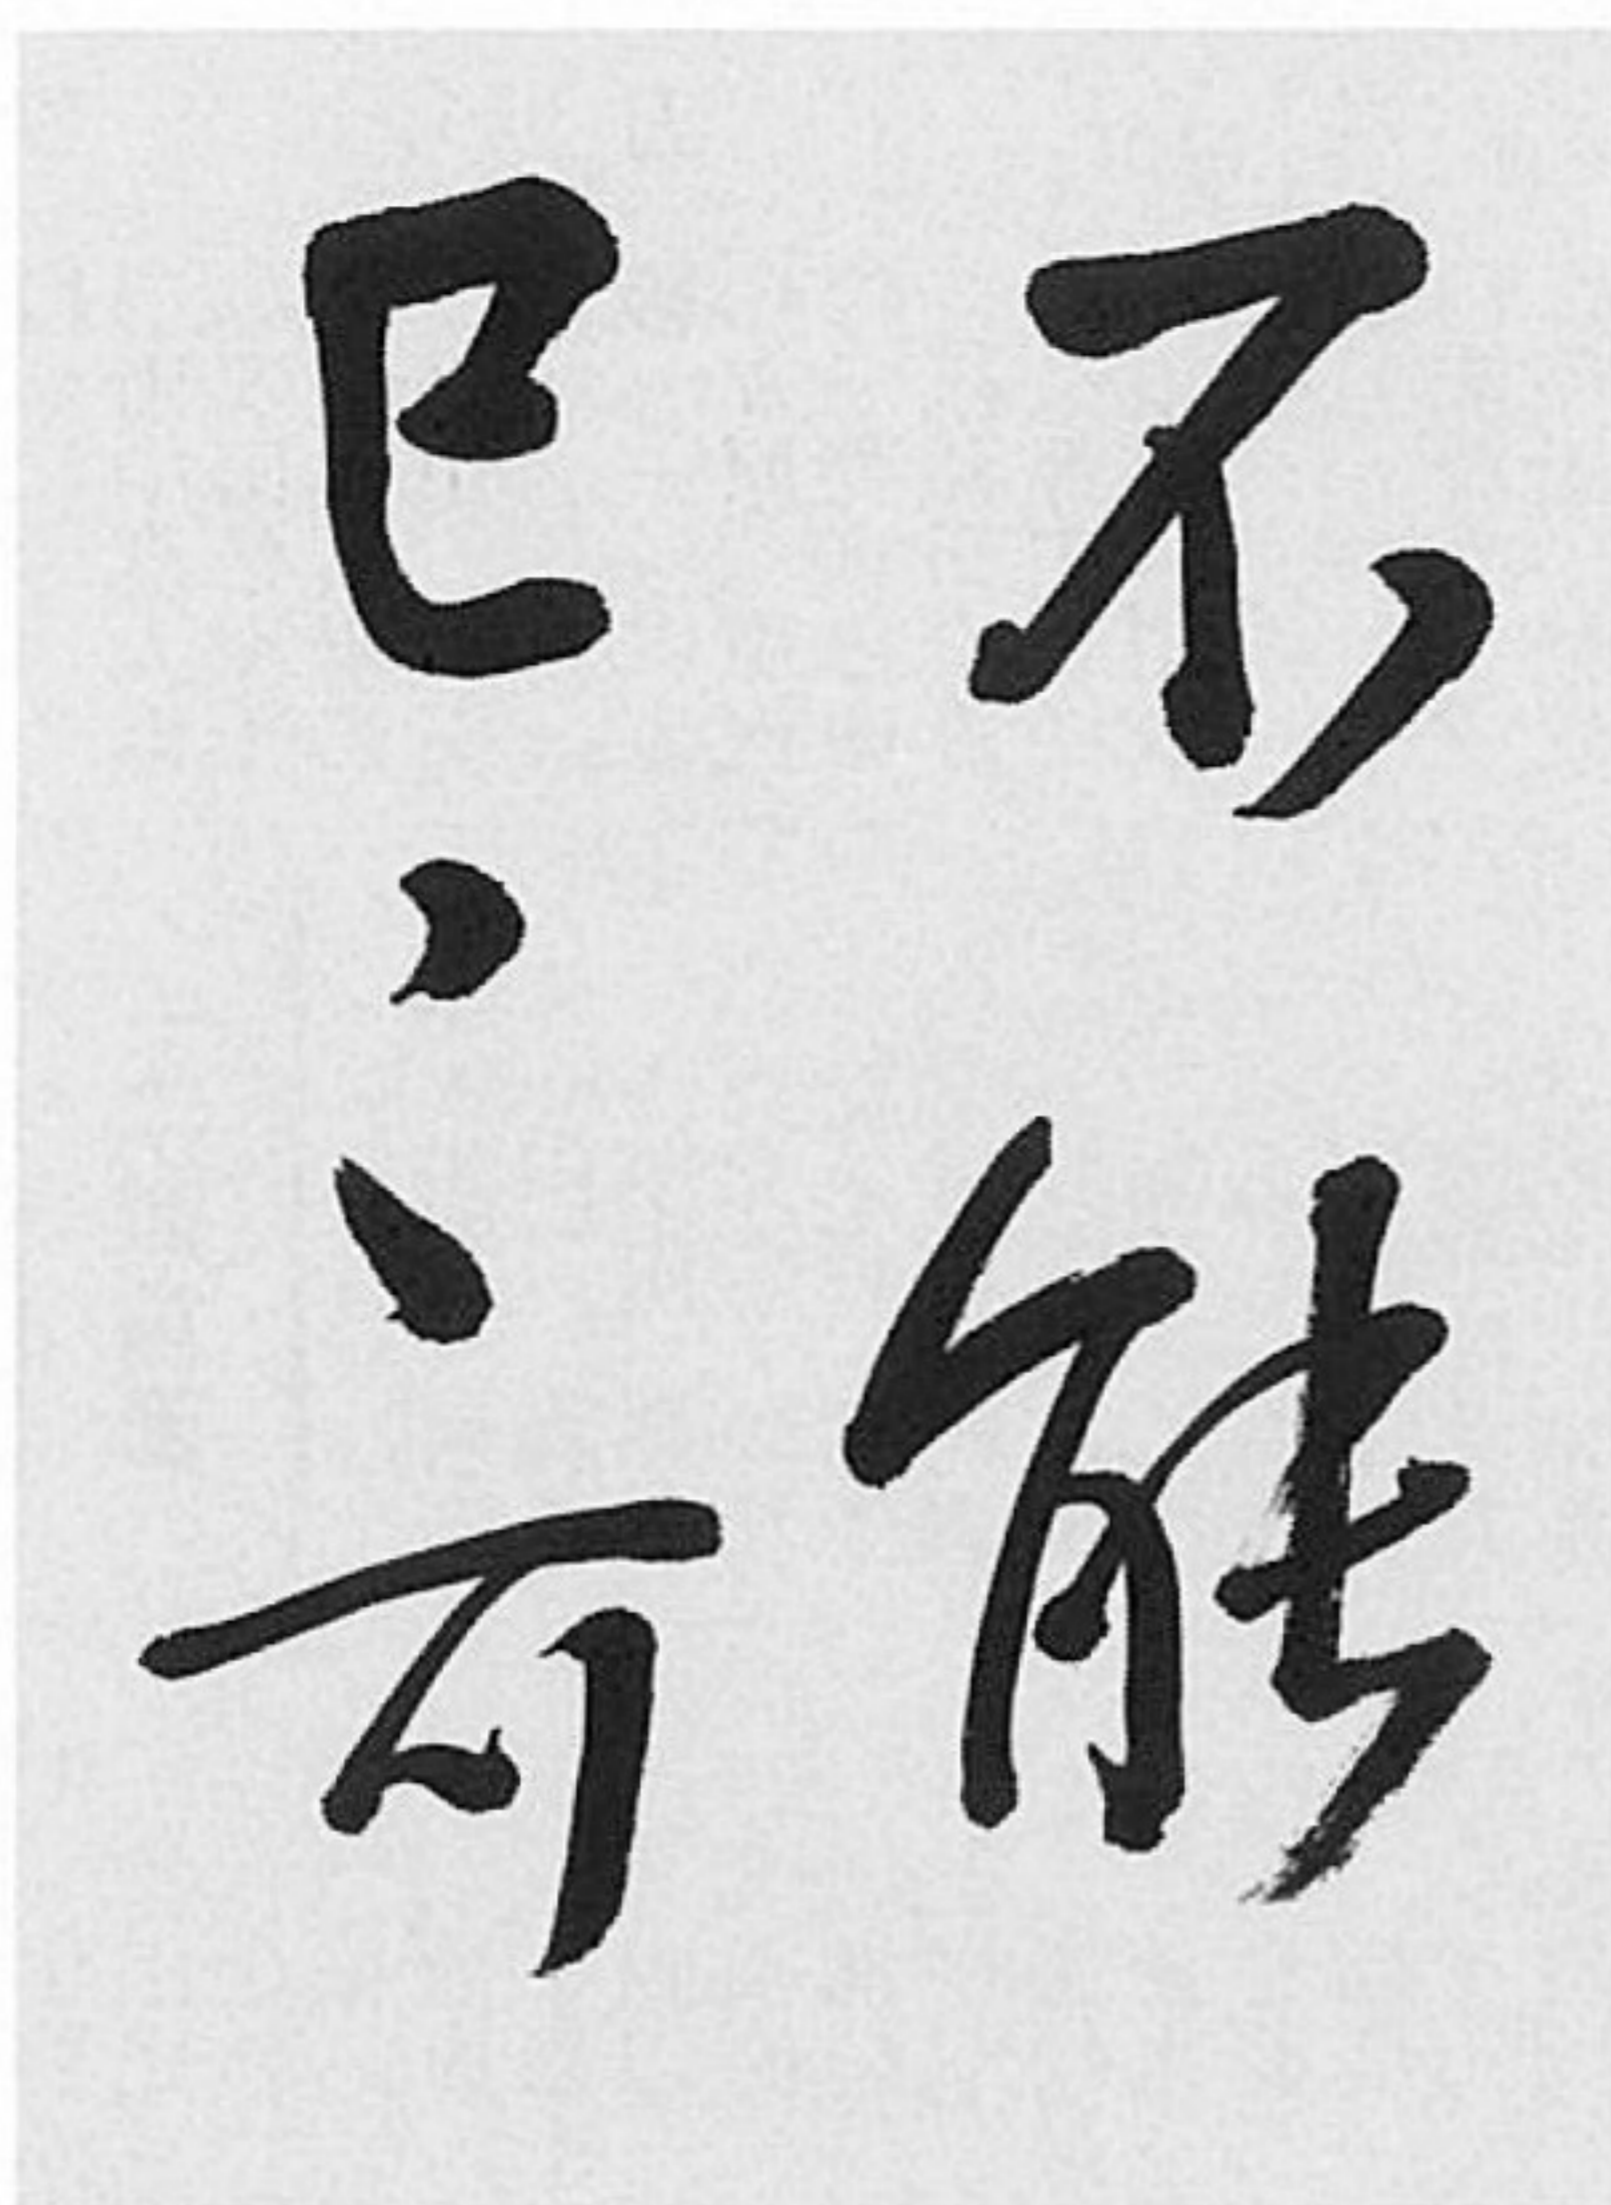 不能
已〻可